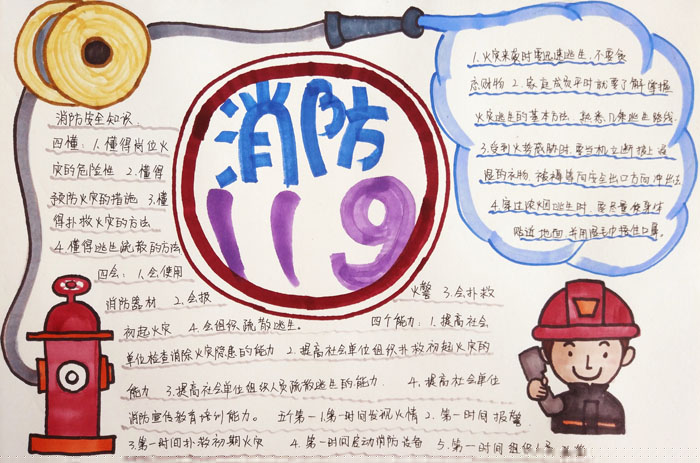 消防
119
消防安全知识
四懂：1.懂得岗位火
灾的危险性 2.懂得
预防火灾的措施 3.懂
得扑救火灾的方法
4.懂得逃生疏散的方法
四会：1.会使用
消防器材 2.会报
火警 3.会扑救
初起火灾 4.会组织疏散逃生。
四个能力：1.提高社会
单位检查消除火灾隐患的能力 2.提高社会单位组织扑救初起火灾的
能力 3.提高社会单位组织人员疏散逃生的能力 4.提高社会单位
消防宣传教育培训能力。 五个第一 1.第一时间发现火情 2.第一时间报警
3.第一时间扑救初期火灾 4.第一时间启动消防设备 5.第一时间组织人员
1.火灾来袭时要迅速逃生，不要贪
恋财物 2.家庭成员平时就要了解掌握
火灾逃生的基本方法，熟悉几条逃生路线
3.受到火势威胁时，要当机立断披上浸
湿的衣物、被褥等向安全出口方向冲出去
4.穿过浓烟逃生时，要尽量使身体
贴近地面，并用湿毛巾捂住口鼻。